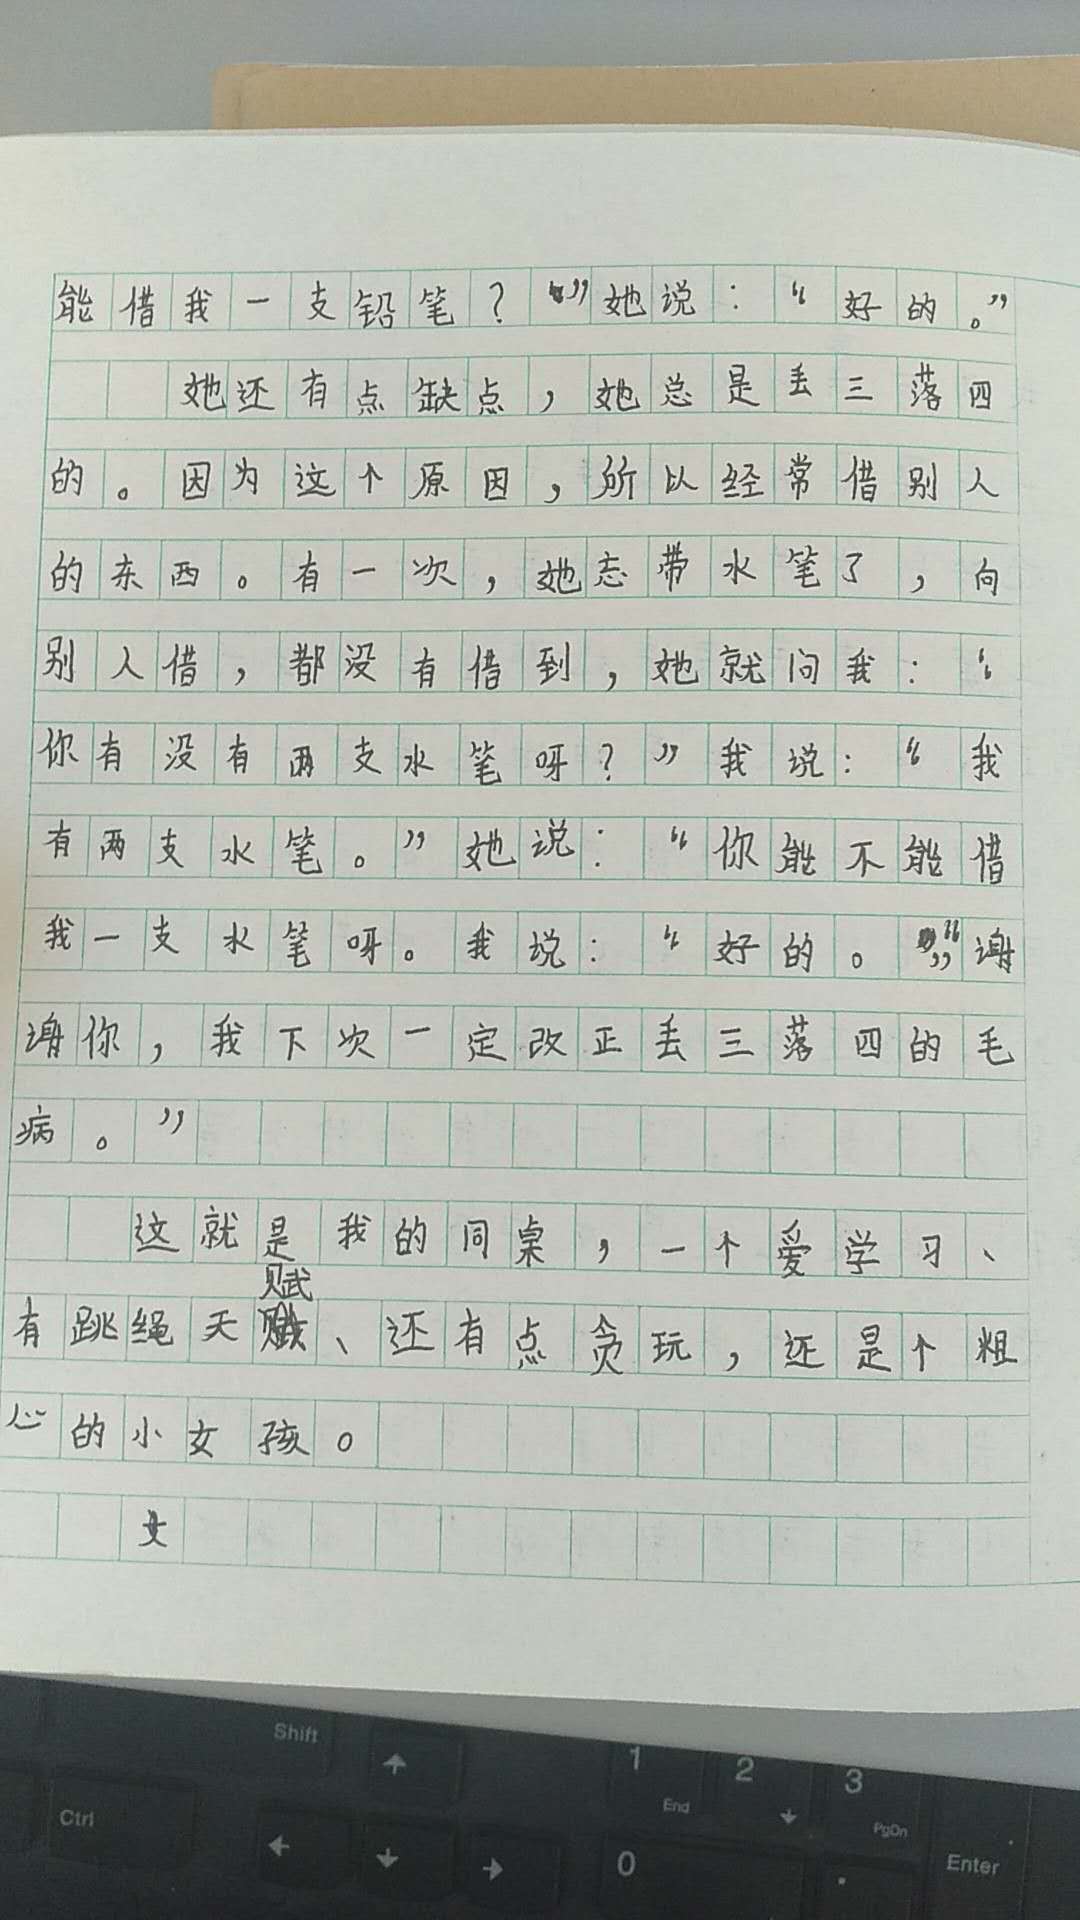 能借我一支铅笔？”她说：“好的。”
她还有点缺点，她总是丢三落四
的。因为这个原因，所以经常借别人
的东西。有一次，她忘带水笔了，向
别人借，都没有借到，她就问我：“
你有没有两支水笔呀？”我说：“我
有两支水笔。”她说：“你能不能借
我一支水笔呀。我说：“好的。”“谢
谢你，我下次一定改正丢三落四的毛
病。”
这就是我的同桌，一个爱学习、
有跳绳天赋、还有点贪玩，还是个粗
心的小女孩。
Shift
Ctrl
1
End
2
3
PgDn
0
.
Enter